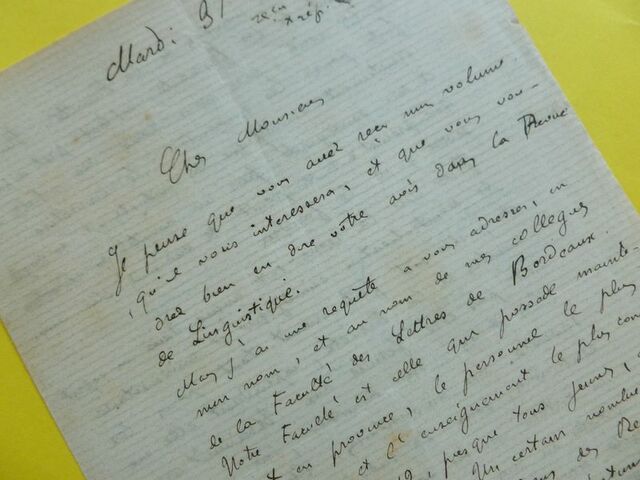 Mardi 31
reçu
répr.
Cher Monsieur
Je pense que vous avez reçu mon volume,
qu'il vous intéressera, et que vous vou-
drez bien en dire votre avis dans la Revue
de Linguistique.
Mais j'ai une requête à vous adresser, en
mon nom, et au nom de mes collègues
de la Faculté des Lettres de Bordeaux.
Notre Faculté est celle qui possède mainte-
en province, le personnel le plus
et l'enseignement le plus com
presque tous jeunes,
Un certain nombre
des Re